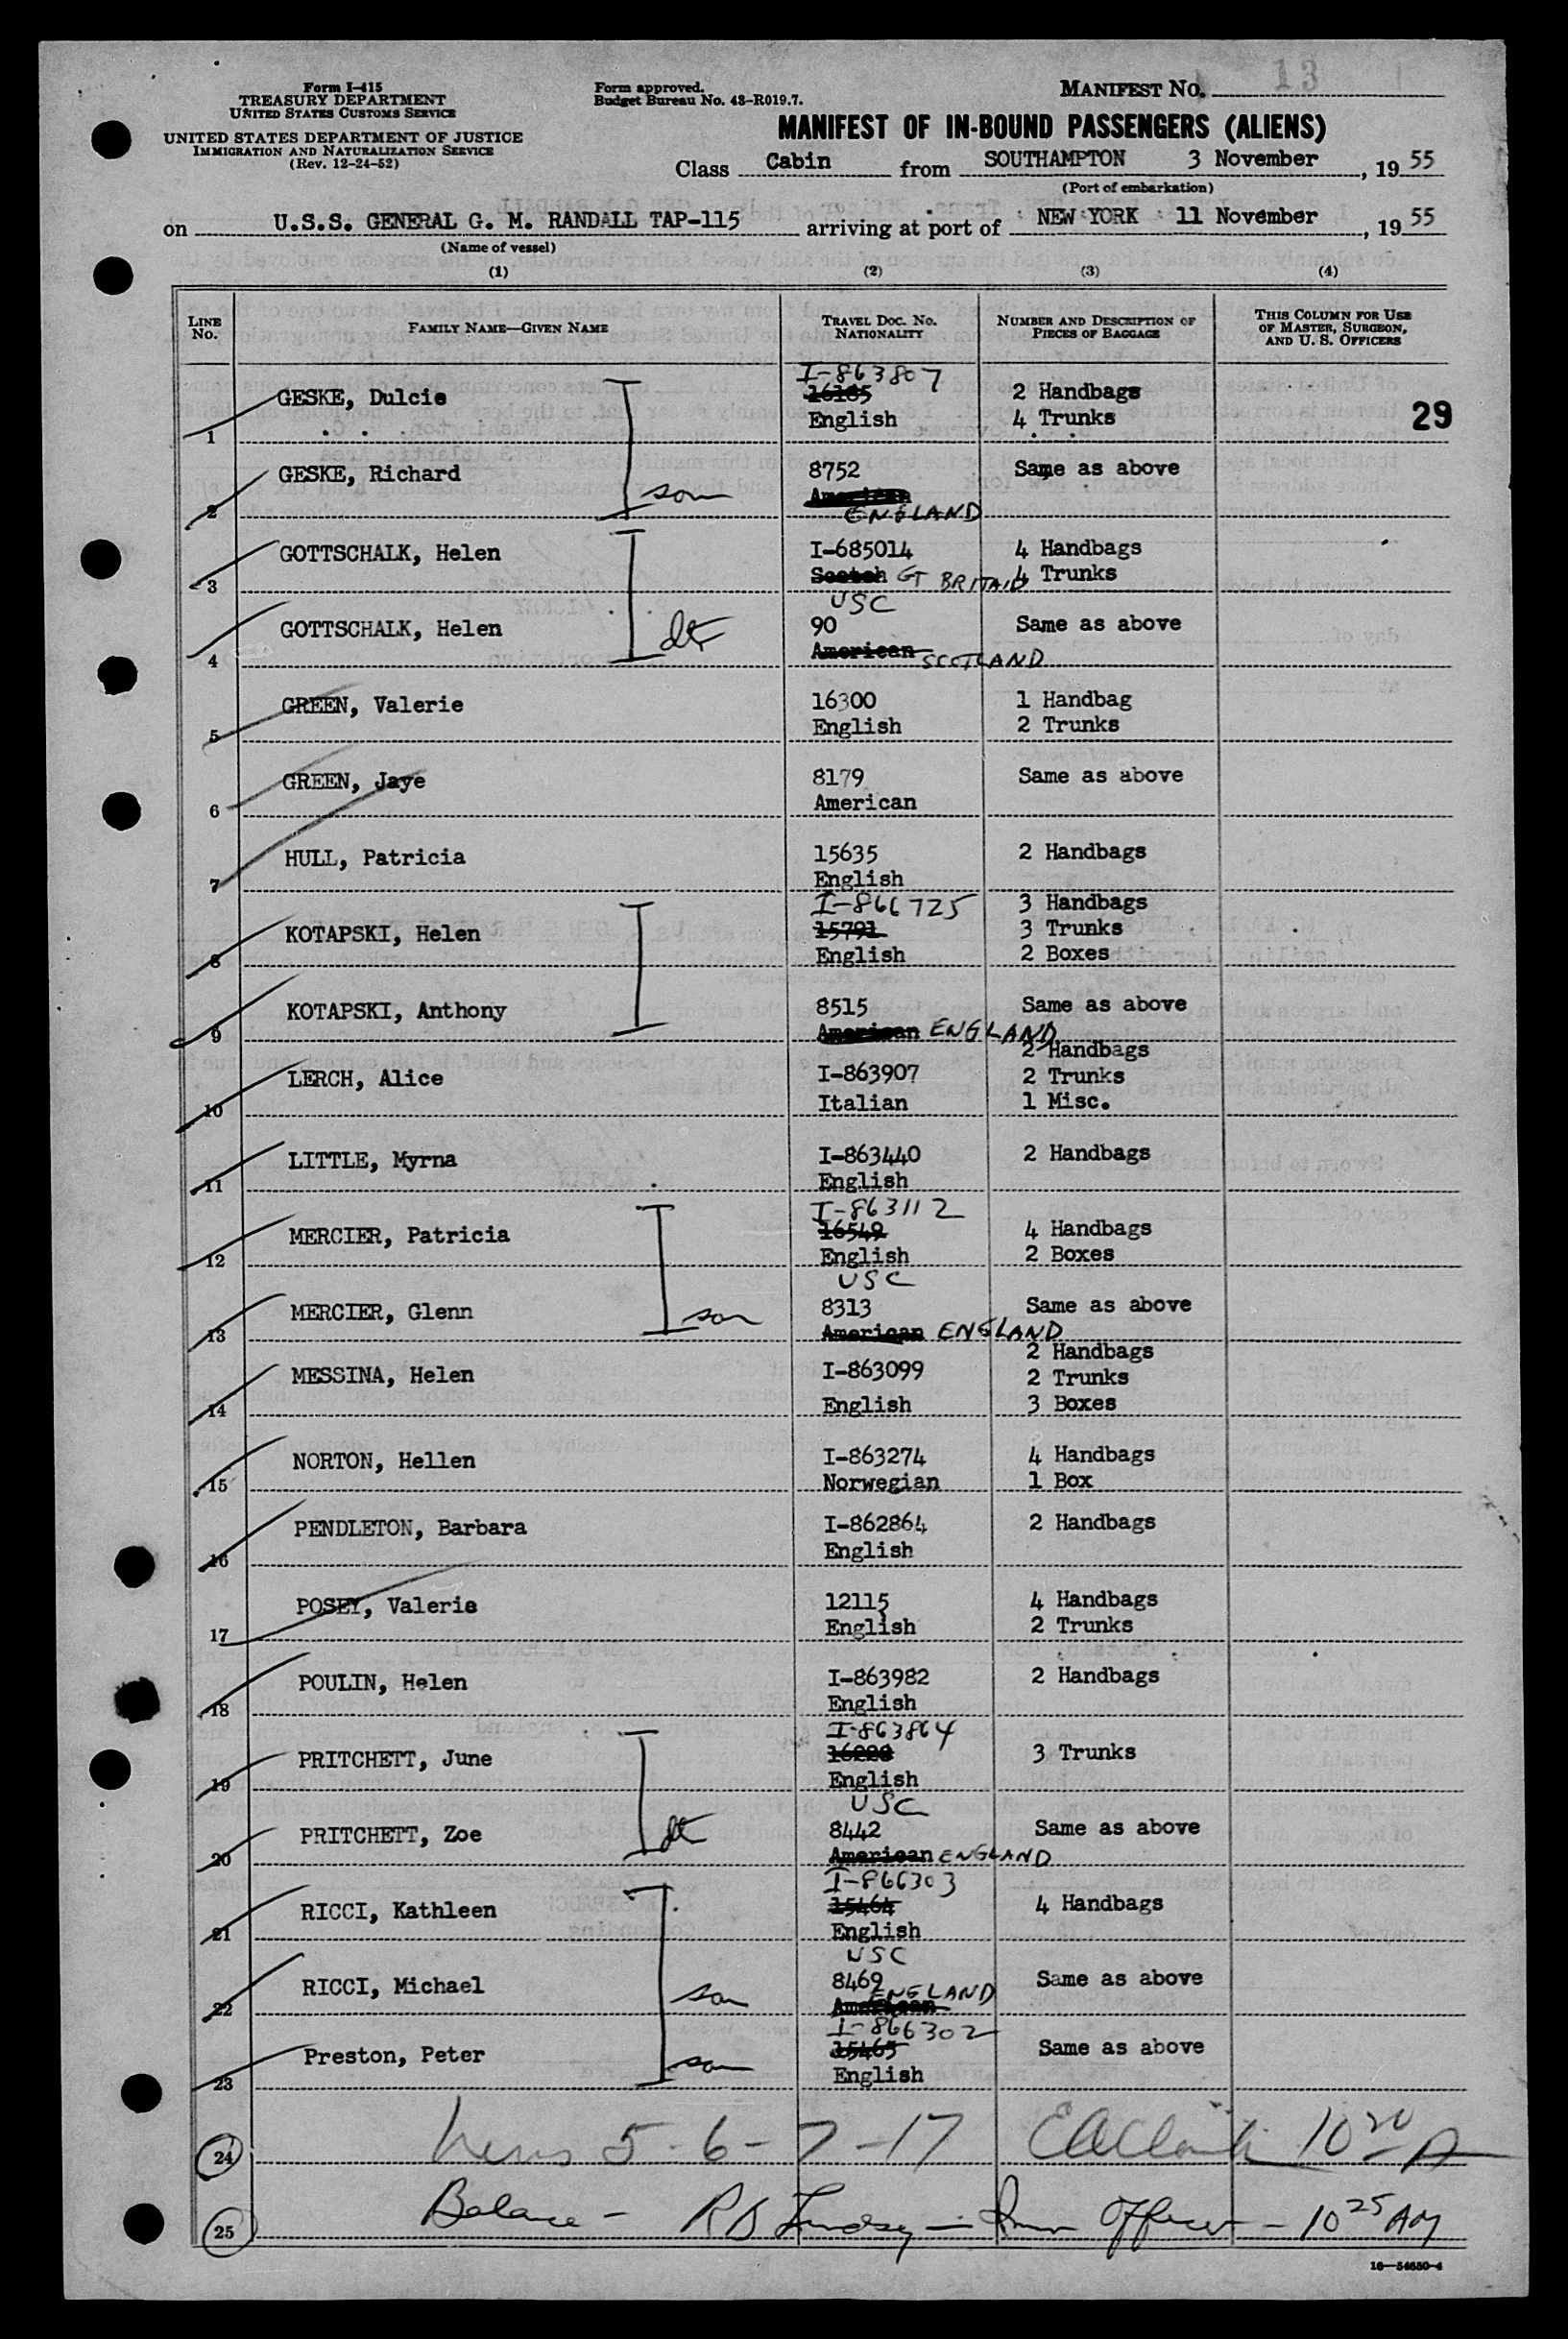 Form I-415
TREASURY DEPARTMENT
UNITED STATES CUSTOMS SERVICE
UNITED STATES DEPARTMENT OF JUSTICE
IMMIGRATION AND NATURALIZATION SERVICE
(Rev. 12-24-52)
Form approved.
Budget Bureau No. 43-R019.7.
MANIFEST NO. 13
MANIFEST OF IN-BOUND PASSENGERS (ALIENS)
Class Cabin from SOUTHAMPTON 3 November, 19 55
(Port of embarkation)
on U.S.S. GENERAL G. M. RANDALL TAP-115 arriving at port of NEW YORK 11 November, 19 55
(Name of vessel)
(1) (2) (3) (4)
LINE No. FAMILY NAME—GIVEN NAME TRAVEL DOC. NO. NATIONALITY NUMBER AND DESCRIPTION OF PIECES OF BAGGAGE THIS COLUMN FOR USE OF MASTER, SURGEON, AND U. S. OFFICERS
I-863807
GESKE, Dulcie 16185 2 Handbags
1 English 4 Trunks 29
GESKE, Richard 8752 Same as above
2 son American
ENGLAND
GOTTSCHALK, Helen I-685014 4 Handbags
3 Scotch GT BRITAIN 4 Trunks
USC
GOTTSCHALK, Helen 90 Same as above
4 dt American SCOTLAND
GREEN, Valerie 16300 1 Handbag
5 English 2 Trunks
GREEN, Jaye 8179 Same as above
6 American
HULL, Patricia 15635 2 Handbags
7 English
I-866725 3 Handbags
KOTAPSKI, Helen 15791 3 Trunks
8 English 2 Boxes
KOTAPSKI, Anthony 8515 Same as above
9 American ENGLAND
2 Handbags
LERCH, Alice I-863907 2 Trunks
10 Italian 1 Misc.
LITTLE, Myrna I-863440 2 Handbags
11 English
I-863112
MERCIER, Patricia 16549 4 Handbags
12 English 2 Boxes
USC
MERCIER, Glenn 8313 Same as above
13 son American ENGLAND
2 Handbags
MESSINA, Helen I-863099 2 Trunks
14 English 3 Boxes
NORTON, Hellen I-863274 4 Handbags
15 Norwegian 1 Box
PENDLETON, Barbara I-862864 2 Handbags
16 English
POSEY, Valerie 12115 4 Handbags
17 English 2 Trunks
POULIN, Helen I-863982 2 Handbags
18 English
I-863864
PRITCHETT, June 3 Trunks
19 English
USC
PRITCHETT, Zoe 8442 Same as above
20 dt American ENGLAND
I-866303
RICCI, Kathleen 15464 4 Handbags
21 English
USC
RICCI, Michael 8469 Same as above
22 son American ENGLAND
I-866302
Preston, Peter 15465 Same as above
23 son English
24 5-6-7-17 10 20 A
25 Balance - R D Lindsey - Imm Officer - 10 25 AM
16—54650-4